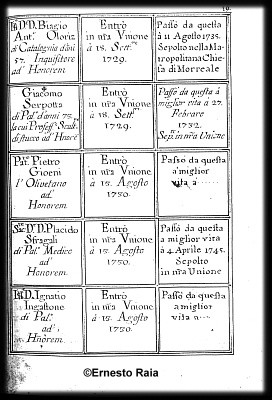 D. D. Biagio
Ant. Oloriz
di Catalogna d'anni
57. Inquisitore
ad Honorem
Entrò
in nra Vnione
à 18. Sett.
1729.
Passò da questa
à 11 Agosto 1735.
Sepolto nella Ma-
tropolitana Chie-
sa di Morreale
Giacomo
Serpotta
di Pal. d'anni 75.
Scult.
di stucco ad Hnore
Entrò
in nra Vnione
à 18. Sett.
1729.
Passò da questa à
miglior vita à 27.
Febraro
1732.
Sep. in nra Unione
Pat. Pietro
Gioeni
l'Olivetano
ad
Honorem
Entrò
in nra Vnione
à 15. Agosto
1730.
Passò da questa
a miglior
vita à
D. D. Placido
Sfragali
di Pal. Medico
ad
Honorem
Entrò
in nra Vnione
à 15. Agosto
1730.
Passò da questa
a miglior vita
à 4. Aprile 1745.
Sepolto
in nra Unione
D. Ignatio
Ingastone
di Pal.
ad
Hnorem
Entrò
in nra Vnione
à 15. Agosto
1730.
Passò da questa
a miglior
vita
©Ernesto Raia